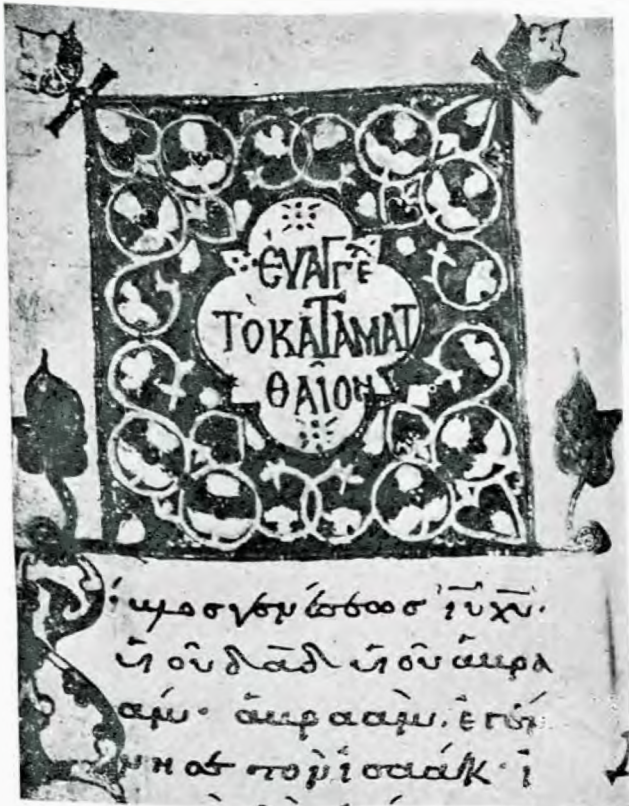 ΕΥΑΓΓΕ
ΤΟ ΚΑΤΑ ΜΑΤ
ΘΑΙΟΝ
βίβλος γενέσεως ἰῦ χῦ·
υἱοῦ δαδ υἱοῦ ἀβρα
άμ· ἀβραὰμ ἐγέν
νησε τὸν ἰσαάκ· ἰ